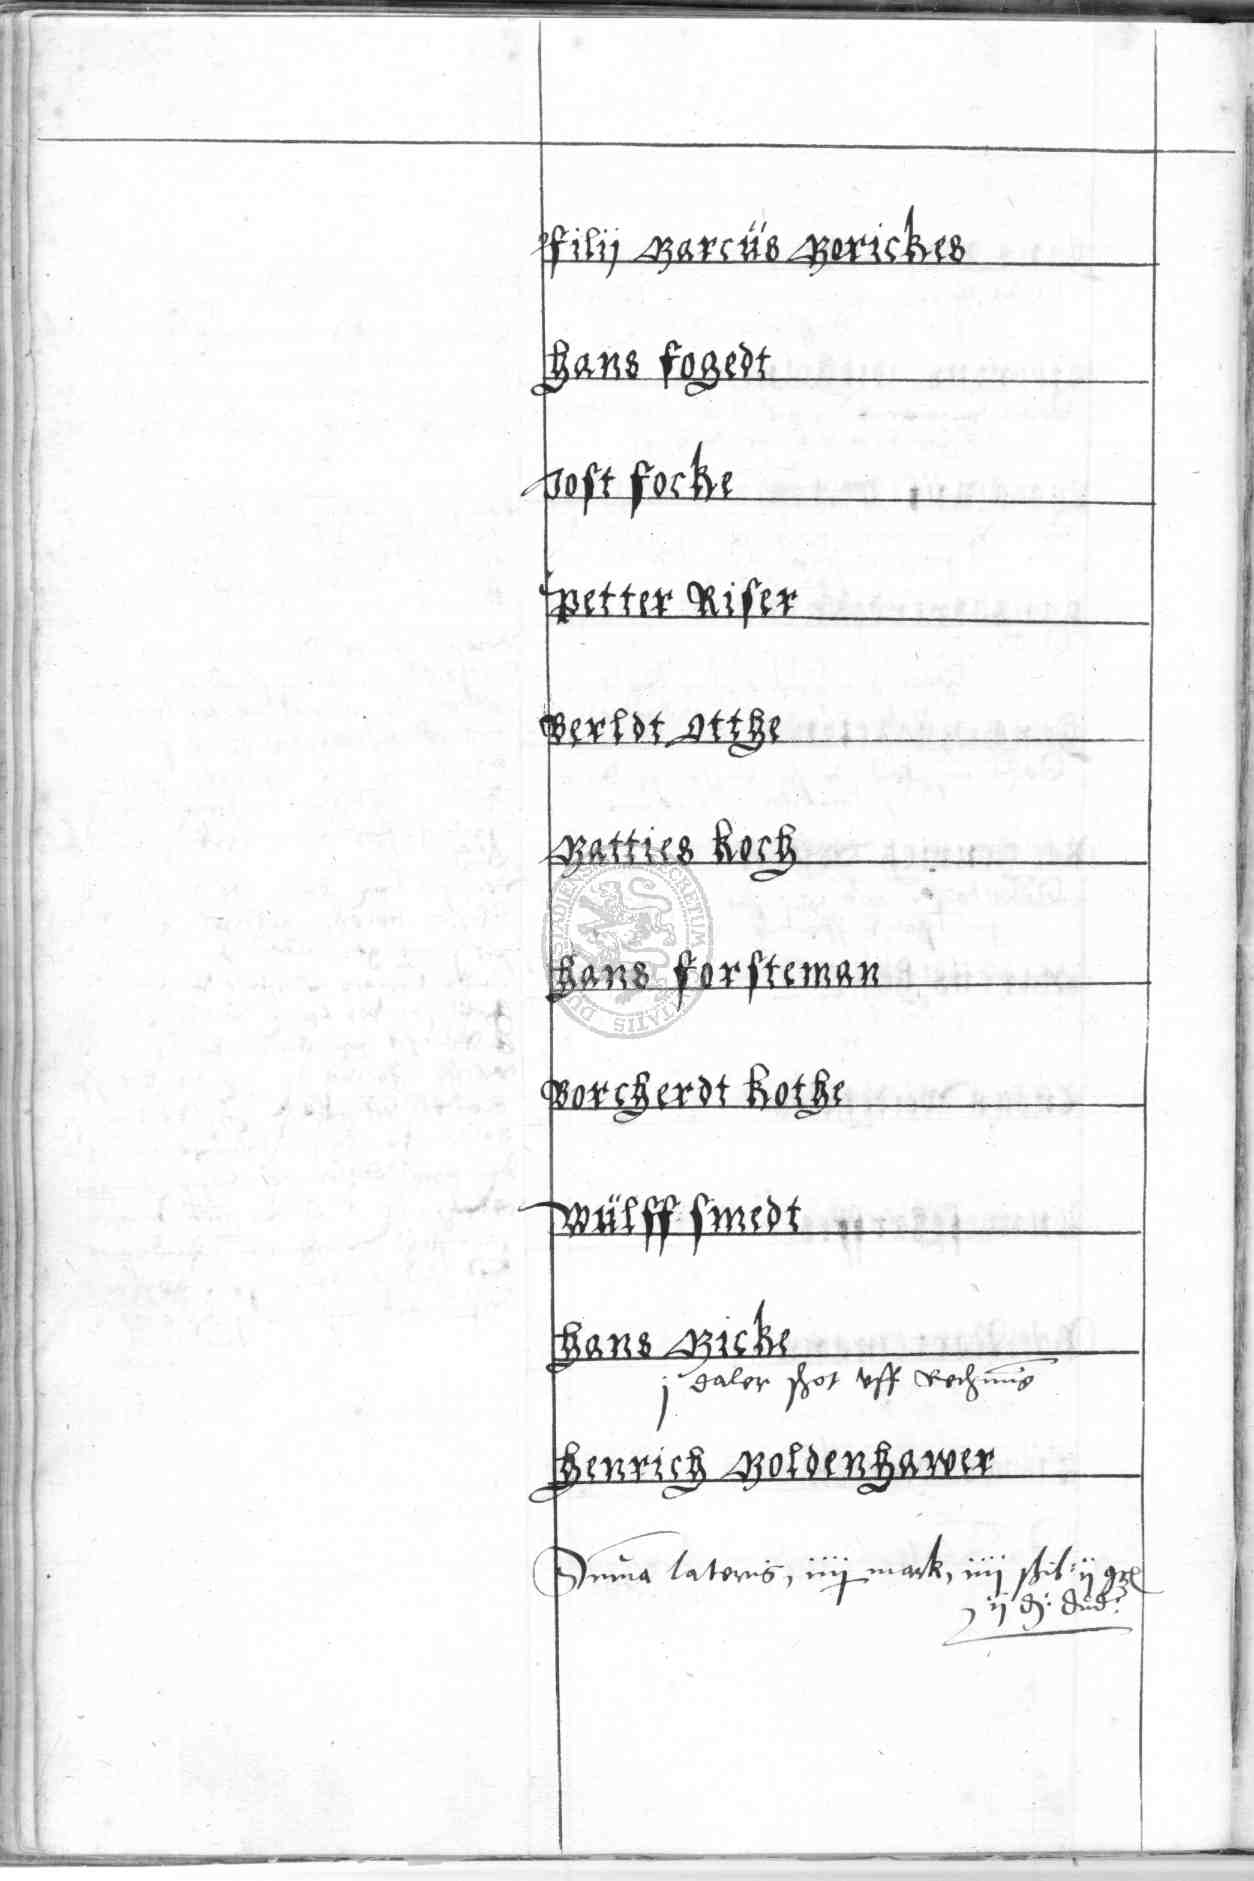 filij Marcüs Borickes
Hans fogedt
Jost focke
Petter Riser
Berldt Otthe
Matties Koch
Hans forsteman
Borcherdt Kothe
Wülff smedt
Hans Micke
j daler shot vff Rechnūs
Henrich Moldenhawer
Suma lateris, iiij mark, iiij shil: ij
ij
SECRETUM